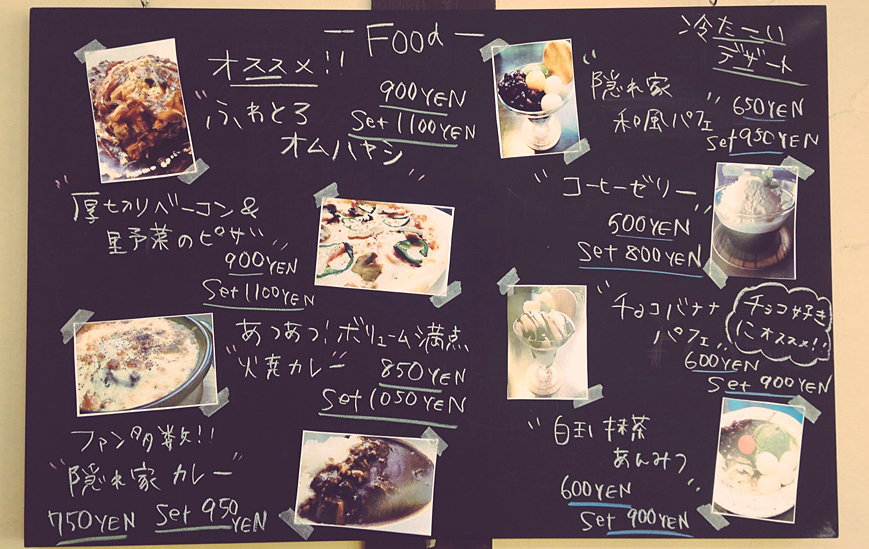 — Food —
オススメ!!
"ふわとろ
オムハヤシ"
900YEN
Set 1100YEN
"厚切りベーコン&
野菜のピザ"
900YEN
Set 1100YEN
あつあつ!ボリューム満点
"焼カレー"
850YEN
Set 1050YEN
ファン多数!!
"隠れ家 カレー"
750YEN Set 950YEN
冷たーい
デザート
"隠れ家
和風パフェ"
650YEN
Set 950YEN
"コーヒーゼリー"
500YEN
Set 800YEN
"チョコバナナ
パフェ"
チョコ好き
にオススメ!!
600YEN
Set 900YEN
"白玉抹茶
あんみつ"
600YEN
Set 900YEN